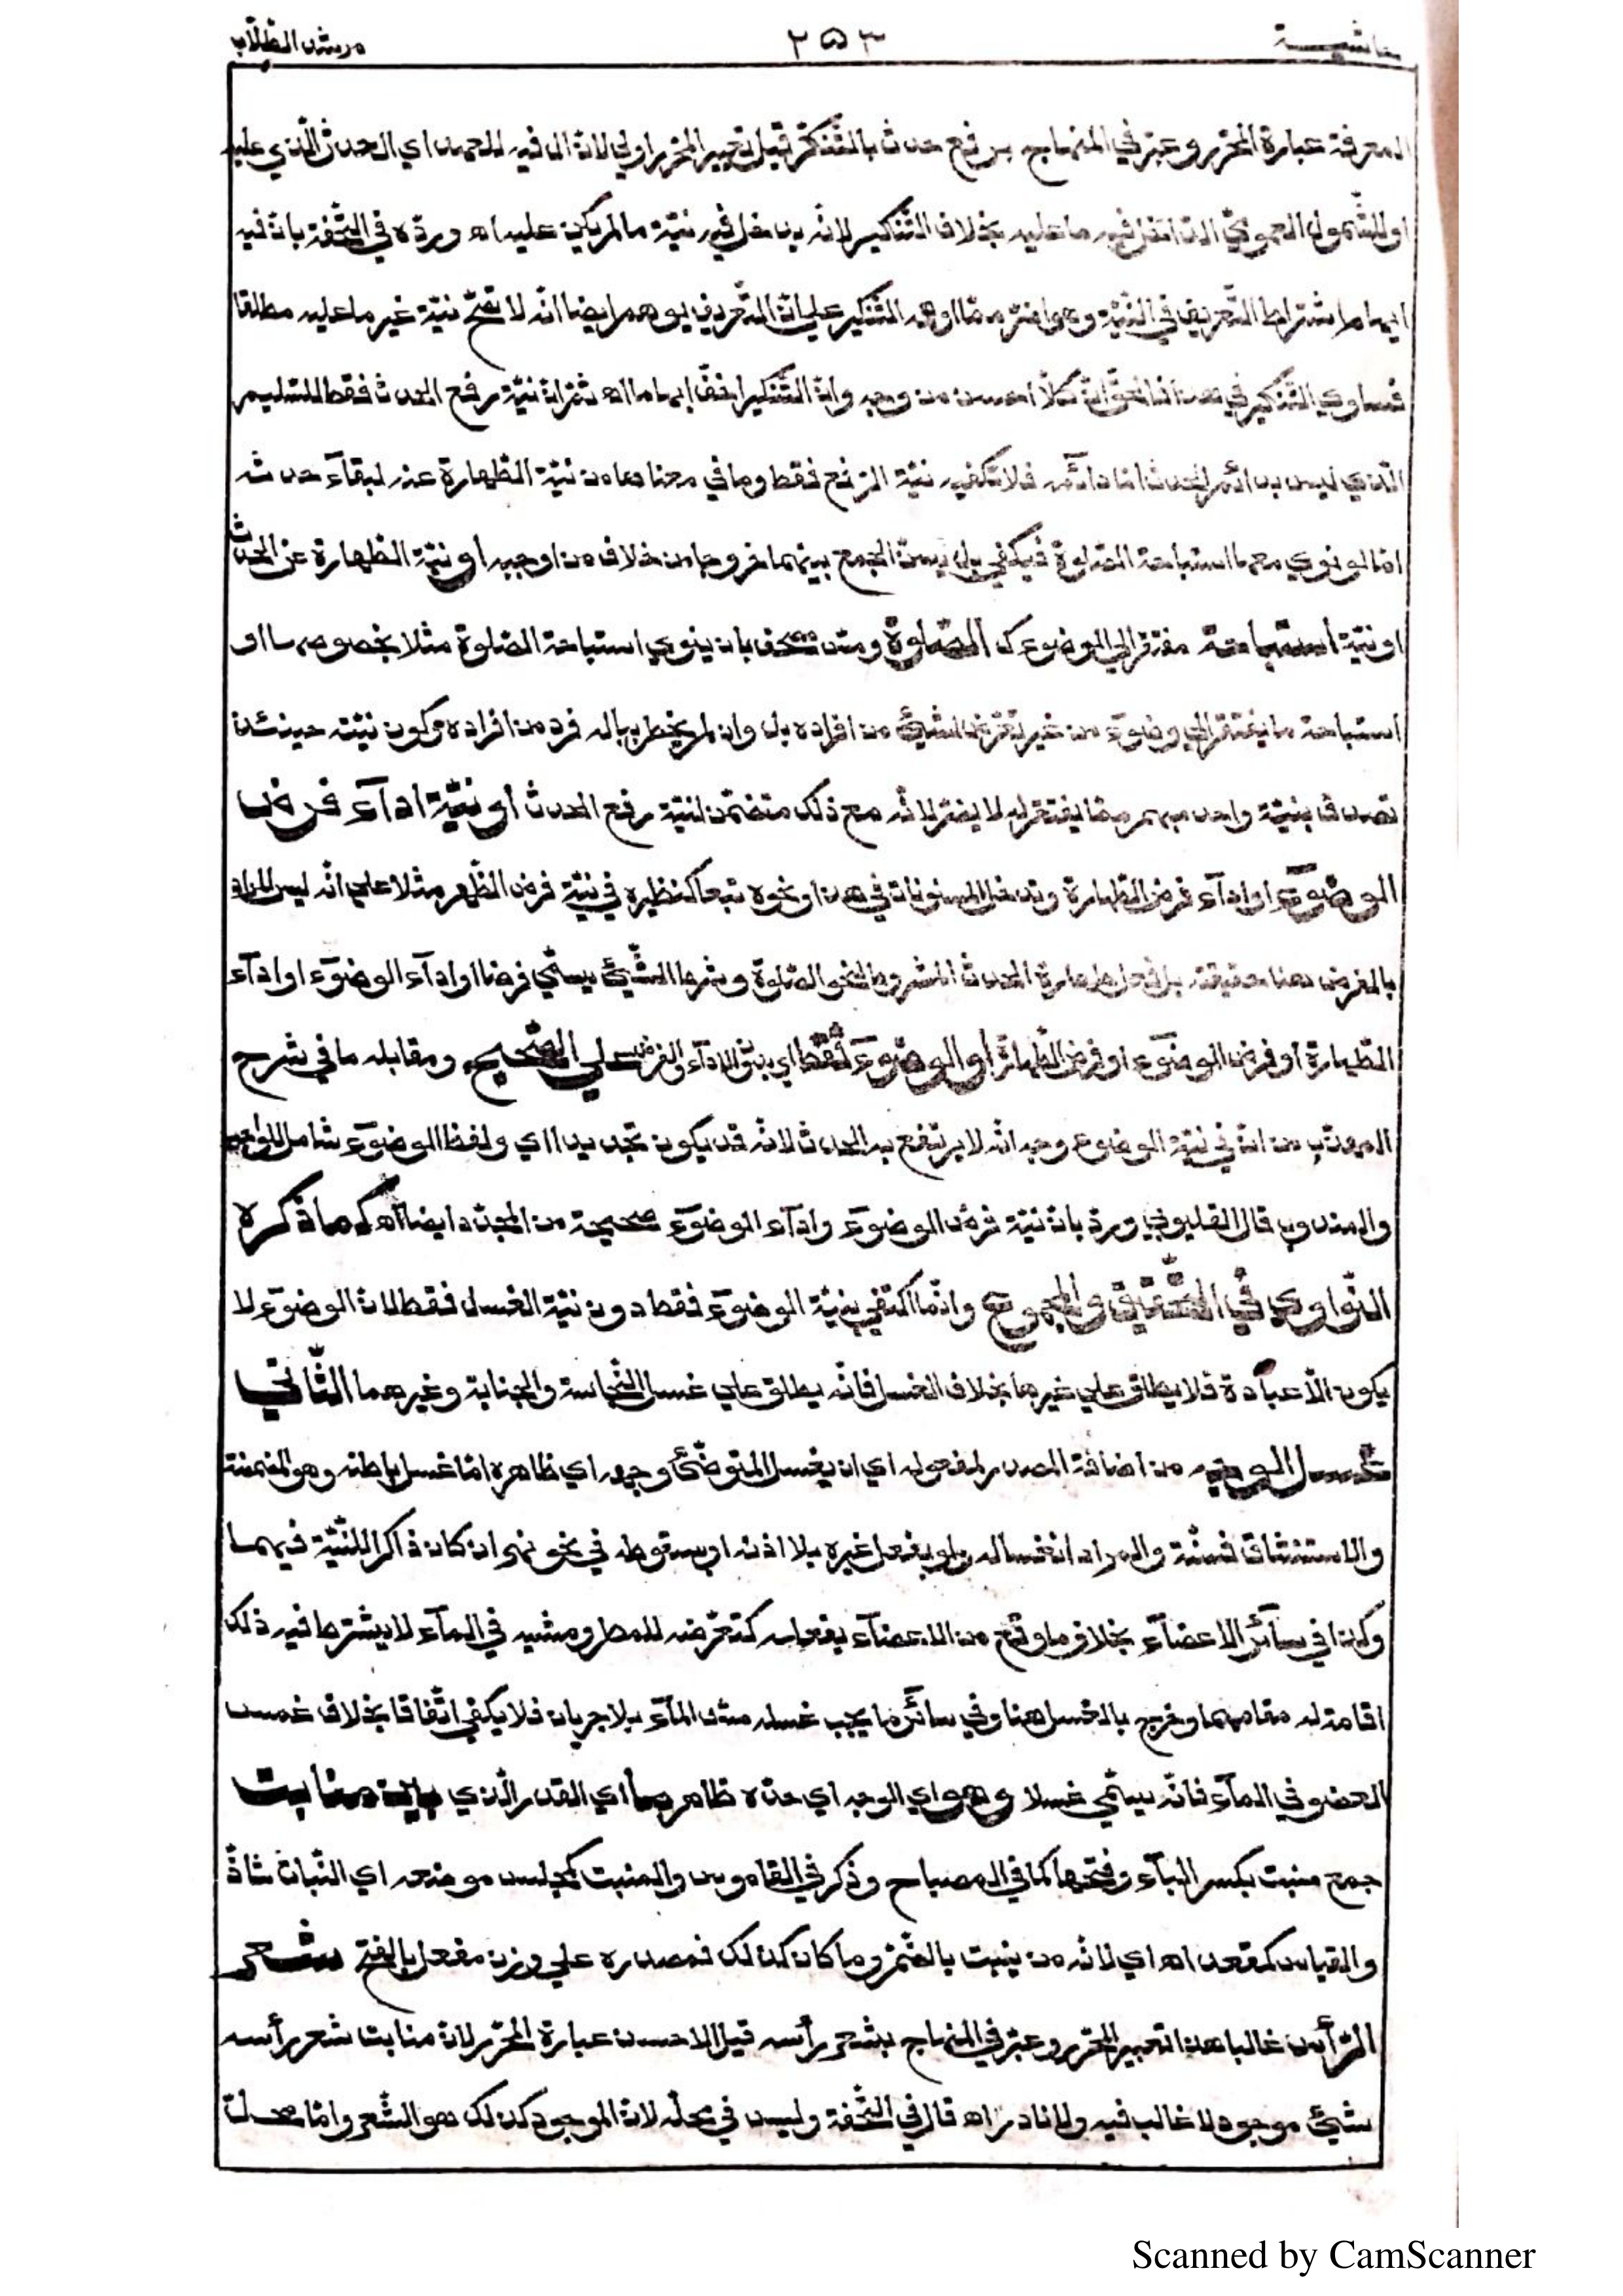 حاشية ٢٥٣ مرشد الطلاب
المعرفة عبارة المحرر وعبر في المنهاج برفع حدث بالتّنكير قيل تعبير المحرر اولى لانّ ال فيه للعهد اي الحدث الّذي عليه
او للشّمول العمومي الّذي دخل فيه ما عليه بخلاف التّنكير لانّه يدخل فيه نيّة ما لم يكن عليه اه وردّه في التّحفة بانّ فيه
ايهام اشتراط التّعريف في النّيّة وهو اضرّ ممّا اوهمه التّنكير على انّ التّعريف يوهم ايضا انّه لا تصحّ نيّة غير ما عليه مطلقا
فساوى التّنكير في هذا فالحقّ انّ كلّا احسن من وجه وانّ التّنكير اخفّ ايهاما اه ثمّ انّ نيّة رفع الحدث فقط للسّليم
الّذي ليس بدائم الحدث امّا دآئمه فلا تكفيه نيّة الرّفع فقط وما في معناها من نيّة الطّهارة عنه لبقآء حدثه
امّا لو نوى معها استباحة الصّلوة فيكفي بل يسنّ الجمع بينهما خروجا من خلاف من اوجبه او نيّة الطّهارة عن الحدث
او نيّة استباحة مفتقر الى الموضوء ك الصّلوة ومسّ مصحف بان ينوي استباحة الصّلوة مثلا بخصوصها او
استباحة ما يفتقر الى وضوء من غير تعرّض لشيئ من افراده بل وان لم يخطر بباله فرد من افراده وكون نيّته حينئذ
تصدق بنيّة واحد مبهم ممّا يفتقر له لا يضرّ لانّه مع ذلك متضمّن لنيّة رفع الحدث او نيّة ادآء فرض
الوضوء او ادآء فرض الطّهارة وتدخل المسنونات في هذا ونحوه تبعا كنظيره في نيّة فرض الظّهر مثلا على انّه ليس المراد
بالفرض هنا حقيقته بل فعل طهارة الحدث المشروط لنحو الصّلوة وشرط الشّيئ يسمّى فرضا او ادآء الوضوء او ادآء
الطّهارة او فرض الوضوء او فرض الطّهارة او الوضوء فقط اي بدون الادآء والفرض على الصّحيح ومقابله ما في شرح
المهذّب من انّ في نيّة الوضوء وجها انّه لا يرتفع به الحدث لانّه قد يكون تجديدا اي ولفظ الوضوء شامل للواجب
والمندوب قال القليوبي وردّ بانّ نيّة فرض الوضوء وادآء الوضوء صحيحة من المجدّد ايضا اه كما ذكره
النّواوي في التّحقيق والمجموع وانّما اكتفي بنيّة الوضوء فقط دون نيّة الغسل فقط لانّ الوضوء لا
يكون الّا عبادة فلا يطلق على غيرها بخلاف الغسل فانّه يطلق على غسل النّجاسة والجنابة وغيرهما الثّاني
غسل الوجه من اضافة المصدر لمفعوله اي ان يغسل المتوضّئ وجهه اي ظاهره امّا غسل باطنه وهو المضمضة
والاستنشاق فسنّة والمراد انغساله ولو بفعل غيره بلا اذنه او بسقوطه في نحو نهر ان كان ذاكرا للنّيّة فيهما
وكذا في سآئر الاعضآء بخلاف ما وقع من الاعضآء بفعله كتعرّضه للمطر ومشيه في المآء لا يشترط فيه ذلك
اقامة له مقامهما وخرج بالغسل هنا وفي سآئر ما يجب غسله مسّ المآء بلا جريان فلا يكفي اتّفاقا بخلاف غمس
العضو في المآء فانّه يسمّى غسلا وهو اي الوجه اي حدّه ظاهر ما اي القدر الّذي بين منابت
جمع منبت بكسر البآء وفتحها كما في المصباح وذكر في القاموس والمنبت كمجلس موضعه اي النّبات شاذّ
والقياس كمقعد اه اي لانّه من ينبت بالضّمّ وما كان كذلك فمصدره على وزن مفعل بالفتح شعر
الرّأس غالبا هذا تعبير المحرّر وعبّر في المنهاج بشعر رأسه قيل الاحسن عبارة المحرّر لانّ منابت شعر رأسه
شيئ موجود لا غالب فيه ولا نادر اه قال في التّحفة وليس في محلّه لانّ الموجود كذلك هو الشّعر وامّا محلّ
Scanned by CamScanner